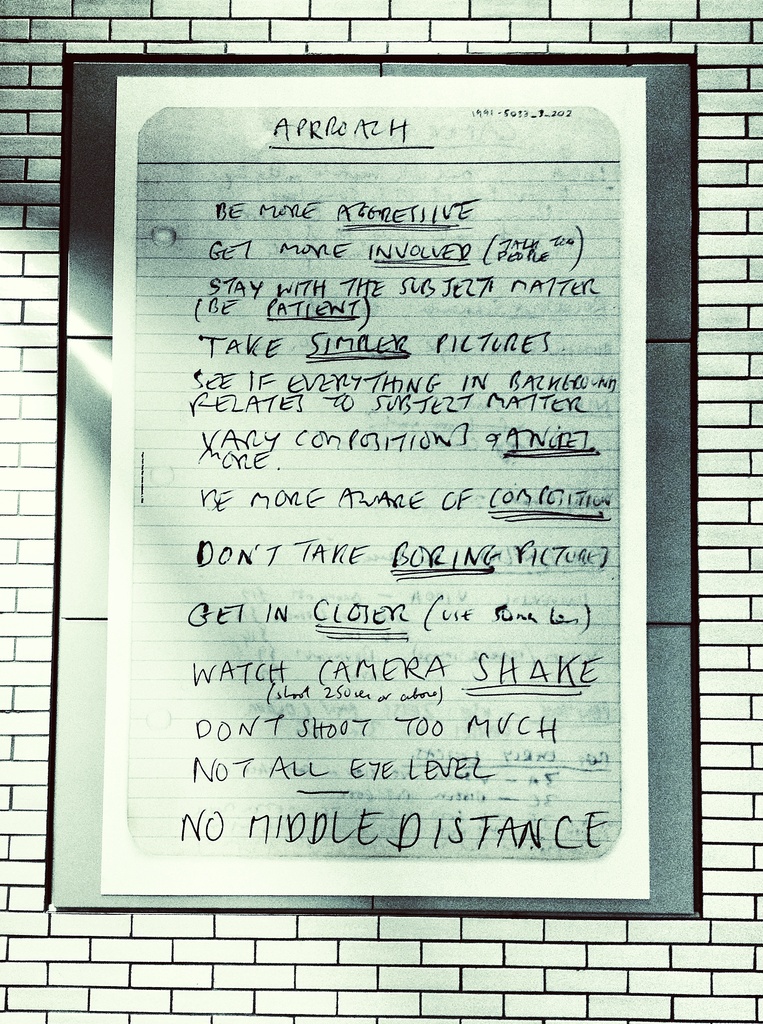 1991-5033_3_202
APPROACH
BE MORE AGGRESSIVE
GET MORE INVOLVED (TALK TO PEOPLE)
STAY WITH THE SUBJECT MATTER
(BE PATIENT)
TAKE SIMPLER PICTURES
SEE IF EVERYTHING IN BACKGROUND
RELATES TO SUBJECT MATTER
VARY COMPOSITIONS & ANGLES
MORE.
BE MORE AWARE OF COMPOSITION
DON'T TAKE BORING PICTURES
GET IN CLOSER (USE 50mm lens)
WATCH CAMERA SHAKE
(shoot 250sec or above)
DON'T SHOOT TOO MUCH
NOT ALL EYE LEVEL
NO MIDDLE DISTANCE